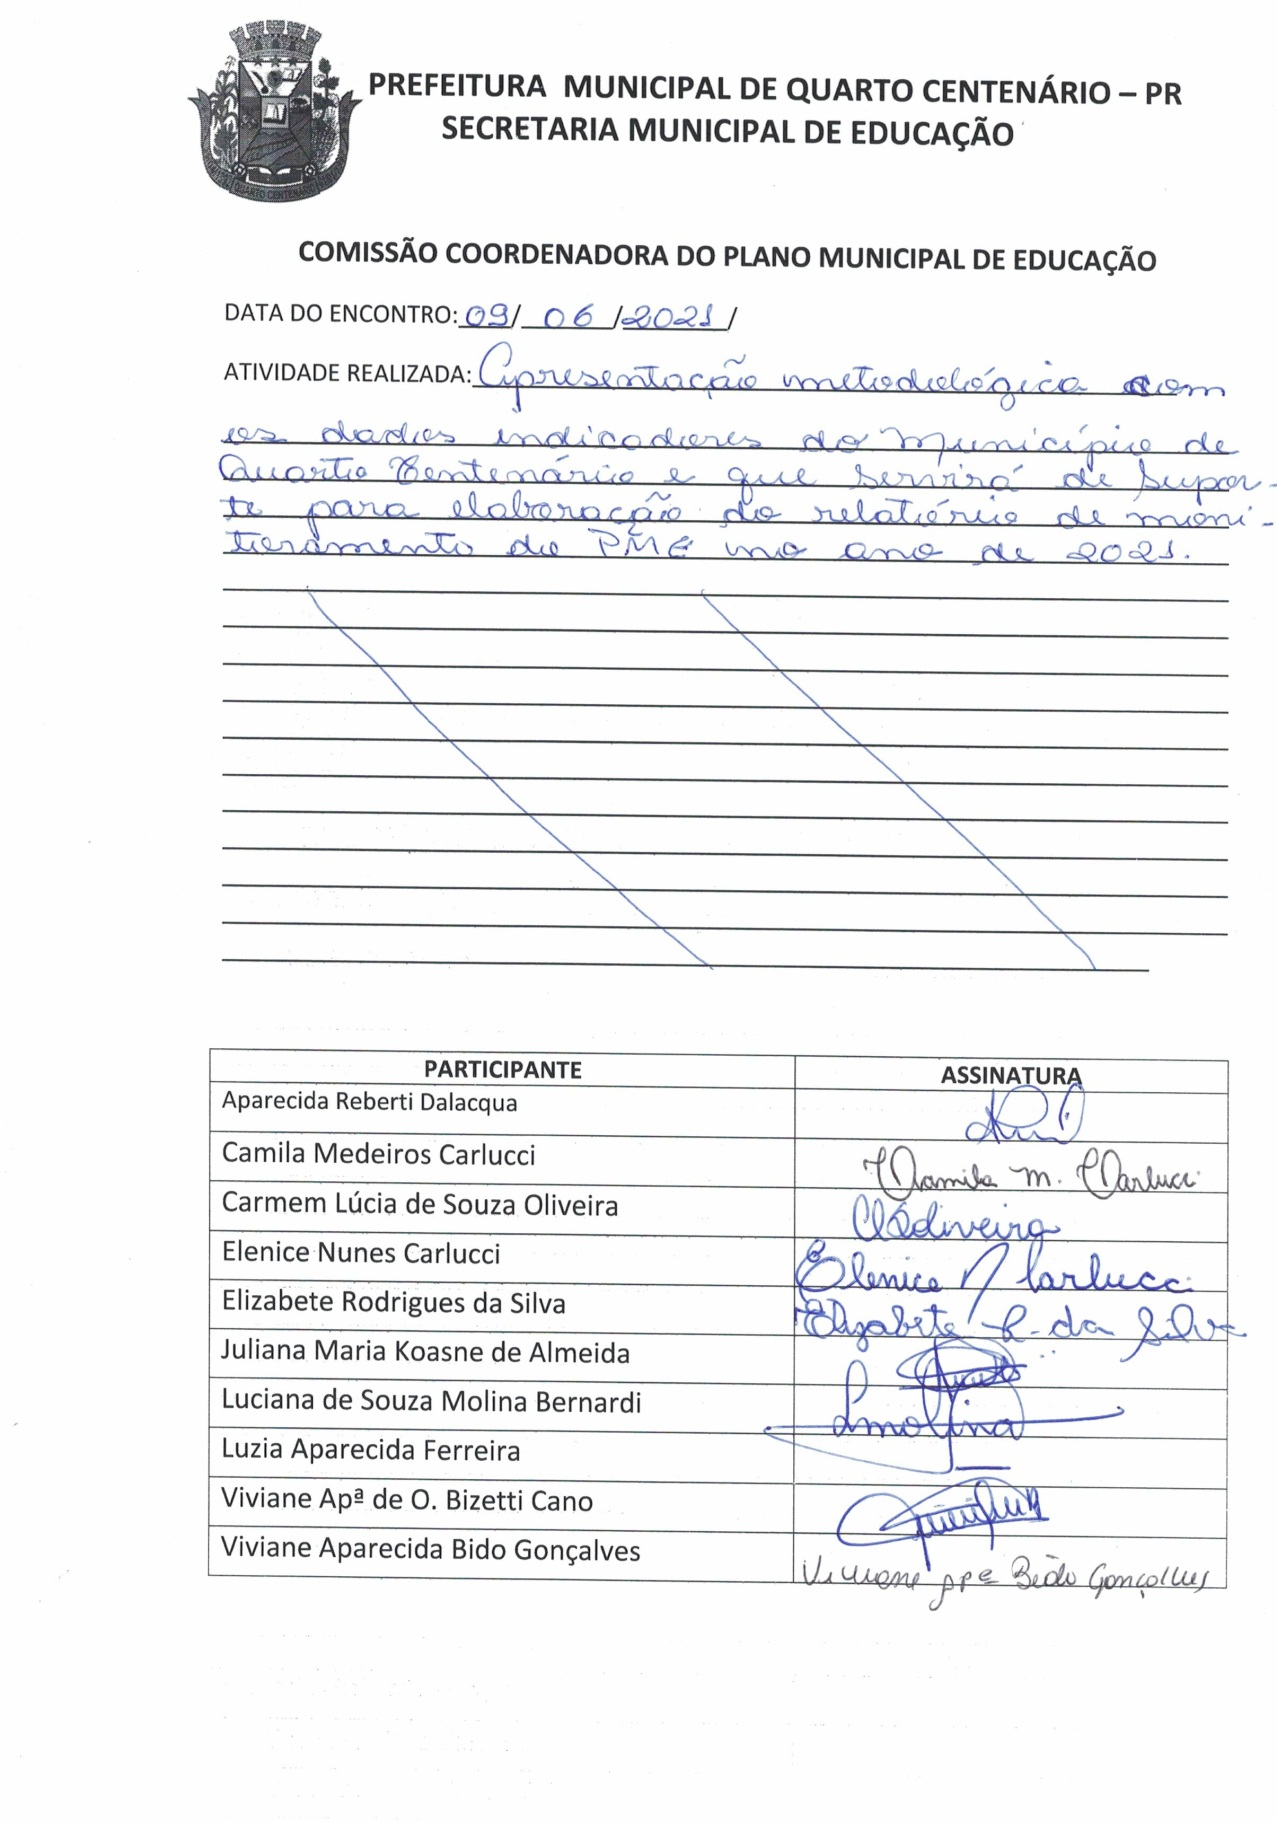 PREFEITURA MUNICIPAL DE QUARTO CENTENÁRIO – PR
SECRETARIA MUNICIPAL DE EDUCAÇÃO
QUARTO CENTENÁRIO
COMISSÃO COORDENADORA DO PLANO MUNICIPAL DE EDUCAÇÃO
DATA DO ENCONTRO: 09/ 06 /2021 /
ATIVIDADE REALIZADA: Apresentação metodológica com
os dados indicadores do Município de
Quarto Centenário e que servirá de supor-
te para elaboração do relatório de moni-
toramento do PME no ano de 2021.
PARTICIPANTE ASSINATURA
Aparecida Reberti Dalacqua
Camila Medeiros Carlucci Camila M. Carlucci
Carmem Lúcia de Souza Oliveira CLSOliveira
Elenice Nunes Carlucci Elenice N Carlucci
Elizabete Rodrigues da Silva Elizabete R. da Silva
Juliana Maria Koasne de Almeida
Luciana de Souza Molina Bernardi Lmolina
Luzia Aparecida Ferreira
Viviane Apª de O. Bizetti Cano
Viviane Aparecida Bido Gonçalves Viviane Apª Bido Gonçalves